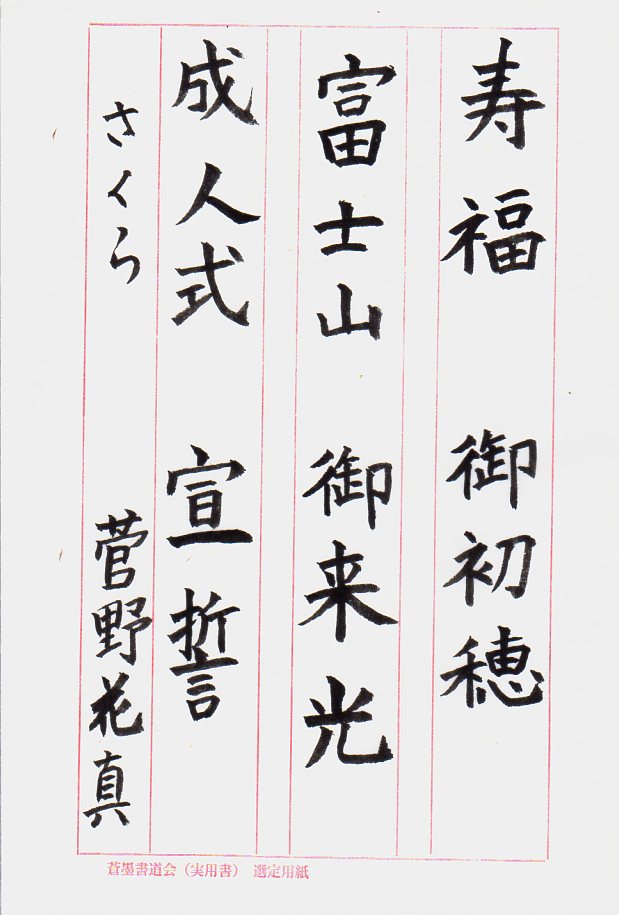 寿福 御初穂
富士山 御来光
成人式 宣誓
さくら 菅野花真
蒼墨書道会（実用書） 選定用紙